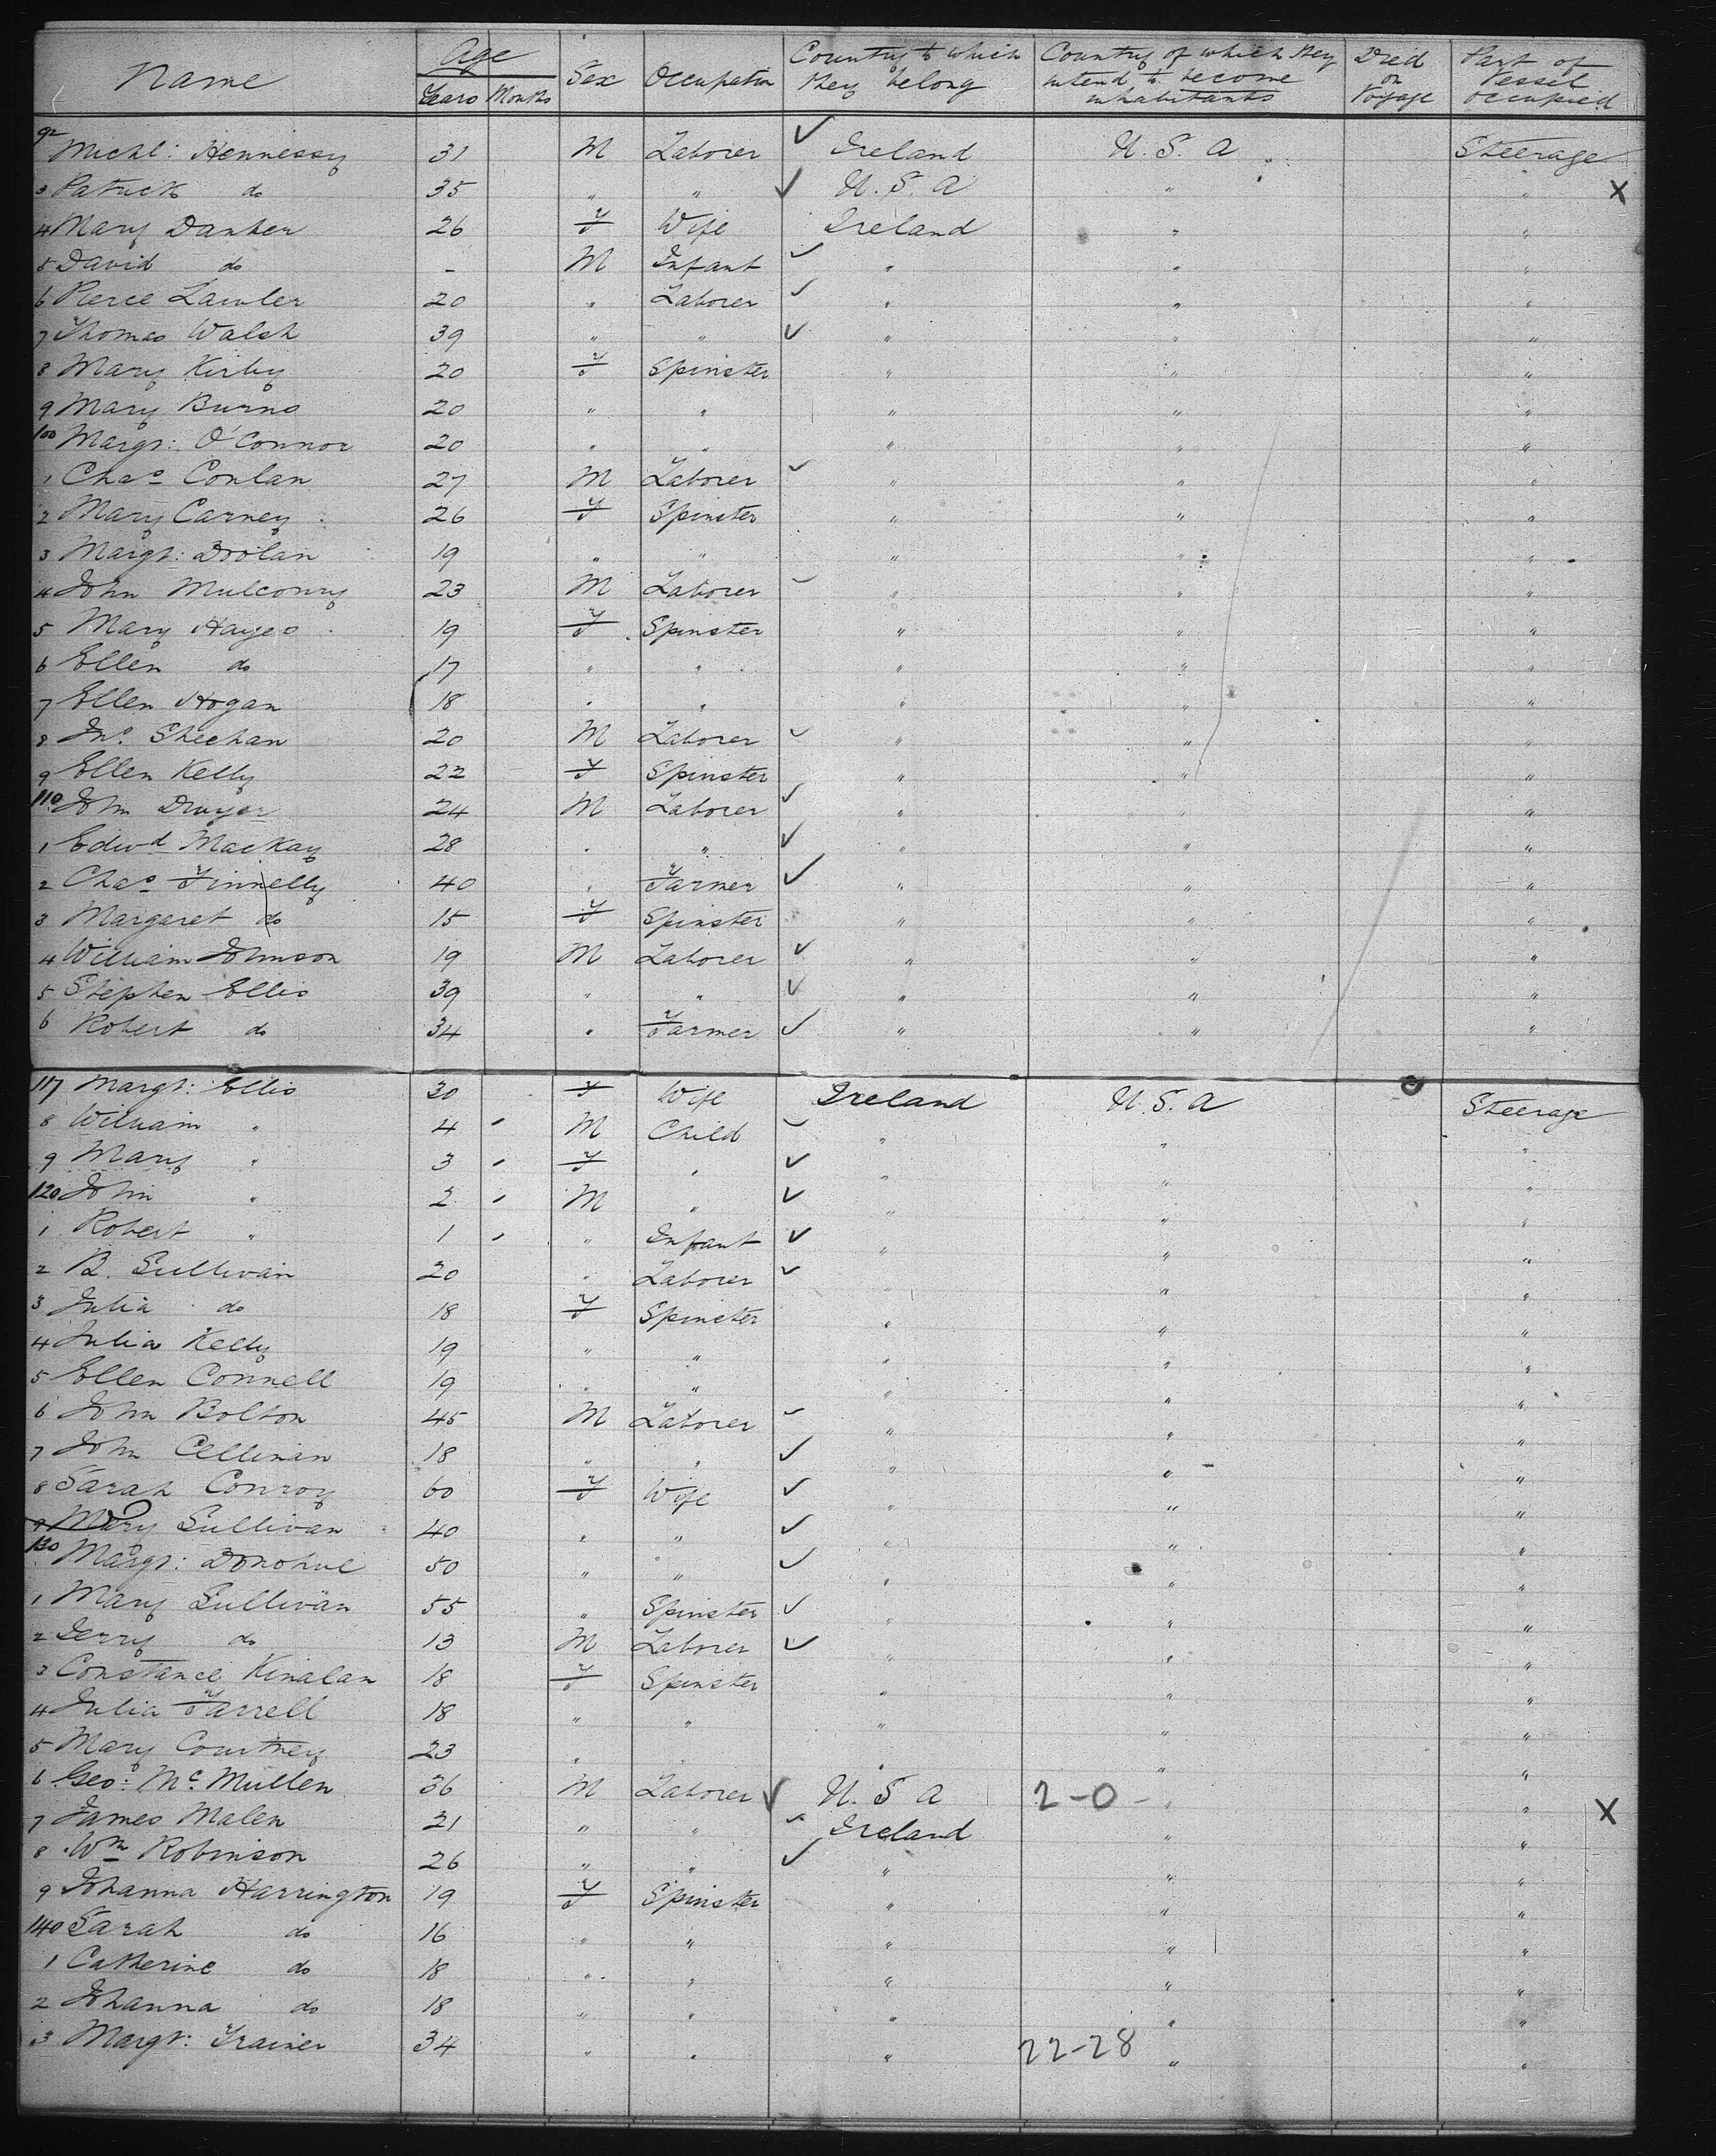 Name Age Years Months Sex Occupation Country to which they belong Country of which they intend to become inhabitants Died on Voyage Part of Vessel occupied
92 Michl: Hennessy 31 M Laborer ✓ Ireland U.S.A Steerage
3 Patrick do 35 " " ✓ U.S.A " " X
4 Mary Danher 26 F Wife Ireland " "
5 David do - M Infant ✓ " " "
6 Pierce Lawler 20 " Laborer ✓ " " "
7 Thomas Walsh 39 " " ✓ " " "
8 Mary Kirby 20 F Spinster " " "
9 Mary Burns 20 " " " " "
100 Margt: O'Connor 20 " " " " "
1 Chas Conlan 27 M Laborer ✓ " " "
2 Mary Carney 26 F Spinster " " "
3 Margt: Doolan 19 " " " " "
4 John Mulconry 23 M Laborer ✓ " " "
5 Mary Hayes 19 F Spinster " " "
6 Ellen do 17 " " " " "
7 Ellen Hogan 18 " " " " "
8 Jno. Sheehan 20 M Laborer ✓ " " "
9 Ellen Kelly 22 F Spinster " " "
110 John Dwyer 24 M Laborer ✓ " " "
1 Edwd MacKay 28 " " ✓ " " "
2 Chas Finnelly 40 " Farmer ✓ " " "
3 Margaret do 15 F Spinster " " "
4 William Johnson 19 M Laborer ✓ " " "
5 Stephen Ellis 39 " " ✓ " " "
6 Robert do 34 " Farmer ✓ " " "
117 Margt: Ellis 30 F Wife Ireland U.S.A Steerage
8 William " 4 M Child ✓ " " "
9 Mary " 3 F " ✓ " " "
120 John " 2 M " ✓ " " "
1 Robert " 1 " Infant ✓ " " "
2 B. Sullivan 20 " Laborer ✓ " " "
3 Julia do 18 F Spinster " " "
4 Julia Kelly 19 " " " " "
5 Ellen Connell 19 " " " " "
6 John Bolton 45 M Laborer ✓ " " "
7 John 18 " " ✓ " " "
8 Sarah Conroy 60 F Wife ✓ " " "
9 Mary Sullivan 40 " " ✓ " " "
130 Margt: Donohue 50 " " ✓ " " "
1 Mary Sullivan 55 " Spinster ✓ " " "
2 Jerry do 13 M Laborer ✓ " " "
3 Constance Kinalan 18 F Spinster " " "
4 Julia Farrell 18 " " " " "
5 Mary Courtney 23 " " " " "
6 Geo: Mc Mullen 36 M Laborer ✓ U.S A 2-0- " " X
7 James Malen 21 " " ✓ Ireland " "
8 Wm Robinson 26 " " ✓ " " "
9 Johanna Harrington 19 F Spinster " " "
140 Sarah do 16 " " " " "
1 Catherine do 18 " " " " "
2 Johanna do 18 " " " " "
3 Margt: Trainer 34 " " " 22-28 " "